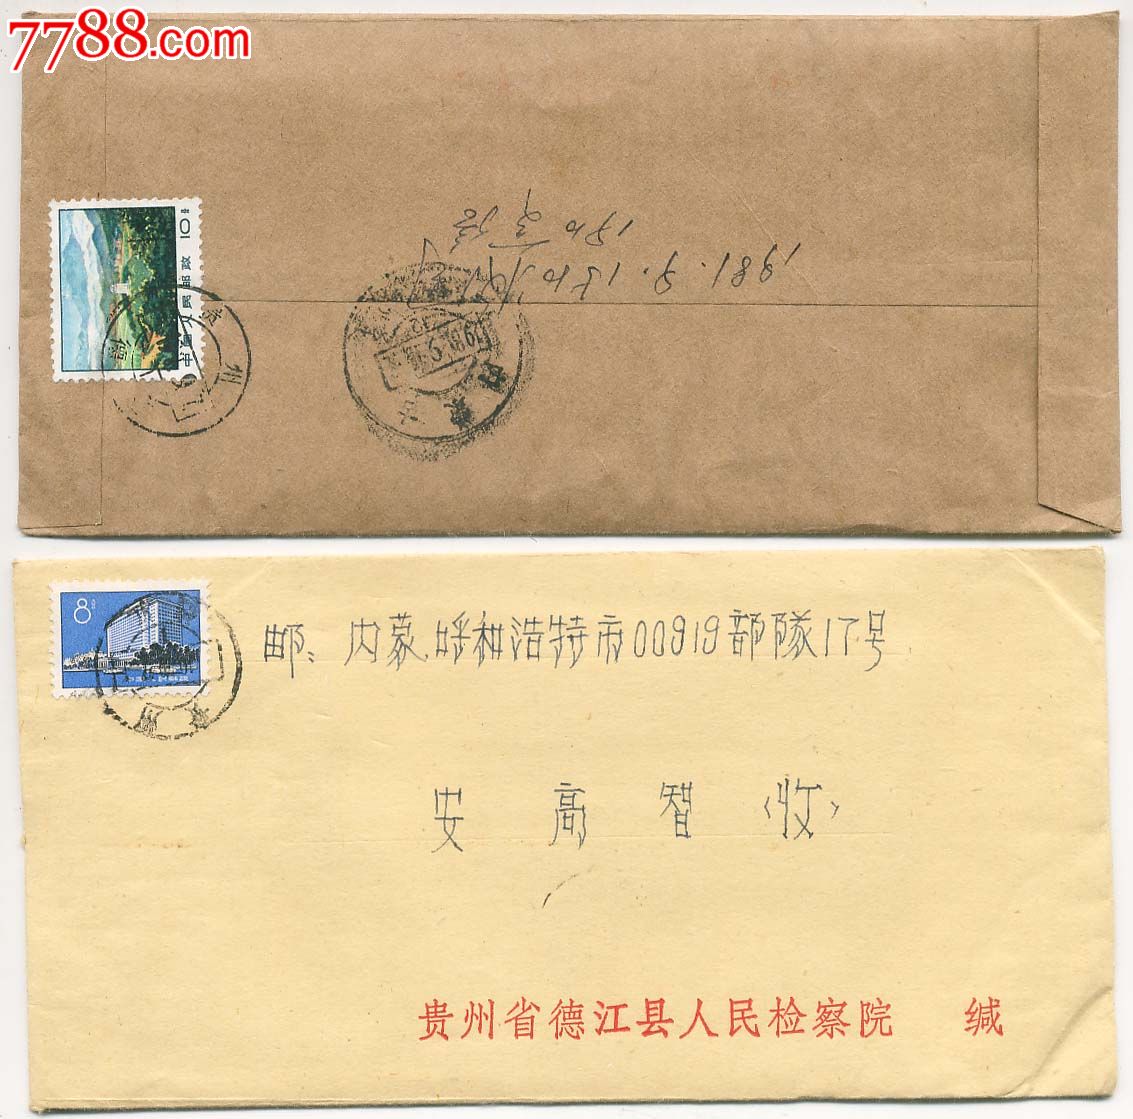 7788.com
10分
中国人民邮政
贵州
德江
1981.9.15日收到
15日
1981.9
8分
邮：内蒙呼和浩特市00919部隊17号
安高智〈收〉
贵州省德江县人民检察院 缄